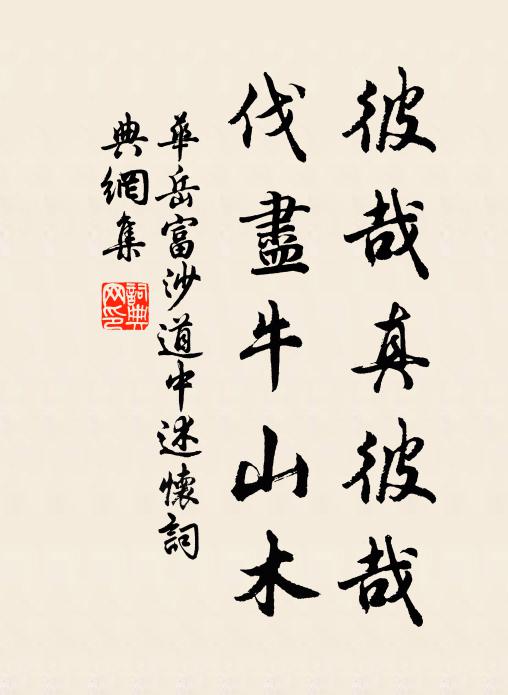 彼哉真彼哉
伐盡牛山木
華岳富沙道中述懷詞
典網集
詞典网印